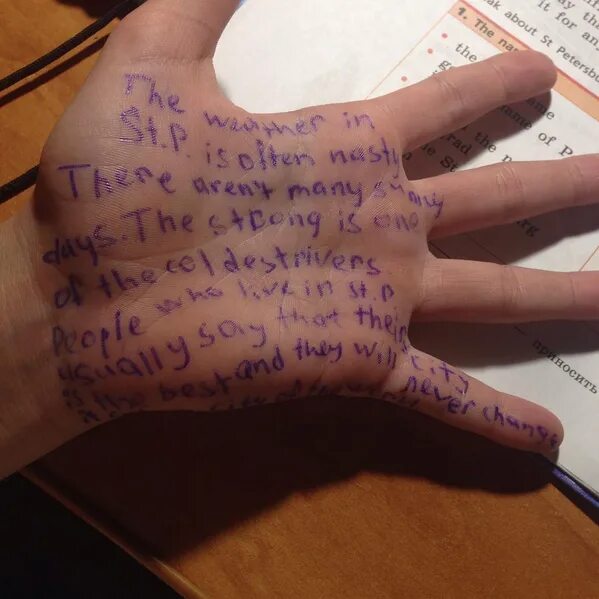 The weather in
St.P. is often nasty
There aren't many sunny
days. The strong is one
of the coldest rivers
People who live in St.P
usually say that their city
is the best and they will never change
1. The nam
ak about St Petersbu
it for an
say tha
the
g
name
name of P
rad
the n
the St
rg
приносить